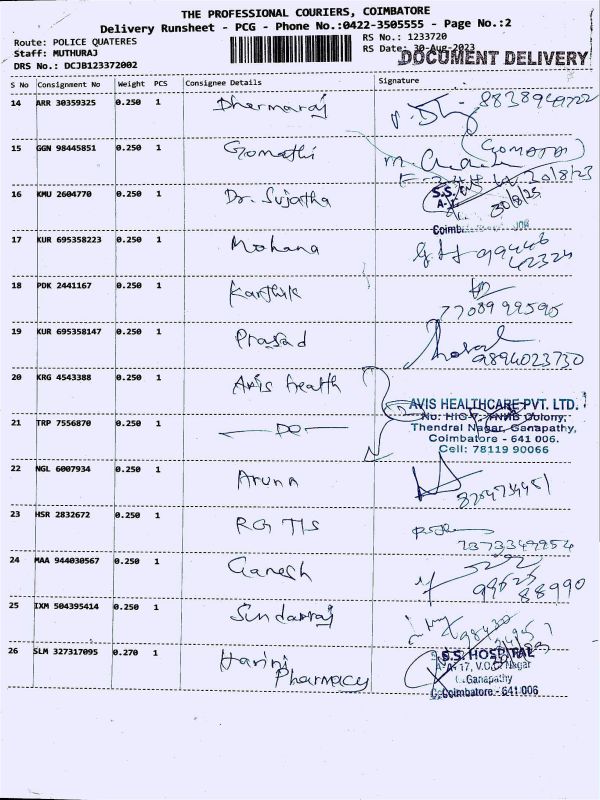 THE PROFESSIONAL COURIERS, COIMBATORE
Delivery Runsheet - PCG - Phone No.:0422-3505555 - Page No.:2
Route: POLICE QUATERES
Staff: MUTHURAJ
DRS No.: DCJB123372002
RS No.: 1233720
RS Date: 30-Aug-2023
DOCUMENT DELIVERY
S No Consignment No Weight PCS Consignee Details Signature
14 ARR 30359325 0.250 1 Dharmaraj
15 GGN 98445851 0.250 1 Gomathi
16 KMU 2604770 0.250 1 Dr. Sujatha S.S. 30/8/23
17 KUR 695358223 0.250 1 Mohana 99446 42324
18 PDK 2441167 0.250 1 Karthik 7708999590
19 KUR 695358147 0.250 1 Prasad 9894023730
20 KRG 4543388 0.250 1 Avis health
AVIS HEALTHCARE PVT. LTD.
Colony,
21 TRP 7556870 0.250 1 DO
Thendral Nagar, Ganapathy,
Coimbatore - 641 006.
Cell: 78119 90066
22 NGL 6007934 0.250 1 Aruna
23 HSR 2832672 0.250 1 RG TIS
24 MAA 944030567 0.250 1 Ganesh 88990
25 IXM 504395414 0.250 1 Sundarraj
26 SLM 327317095 0.270 1 Harini Pharmacy
S.S. HOSPITAL
17, V.O.C. Nagar
Ganapathy
Coimbatore - 641 006